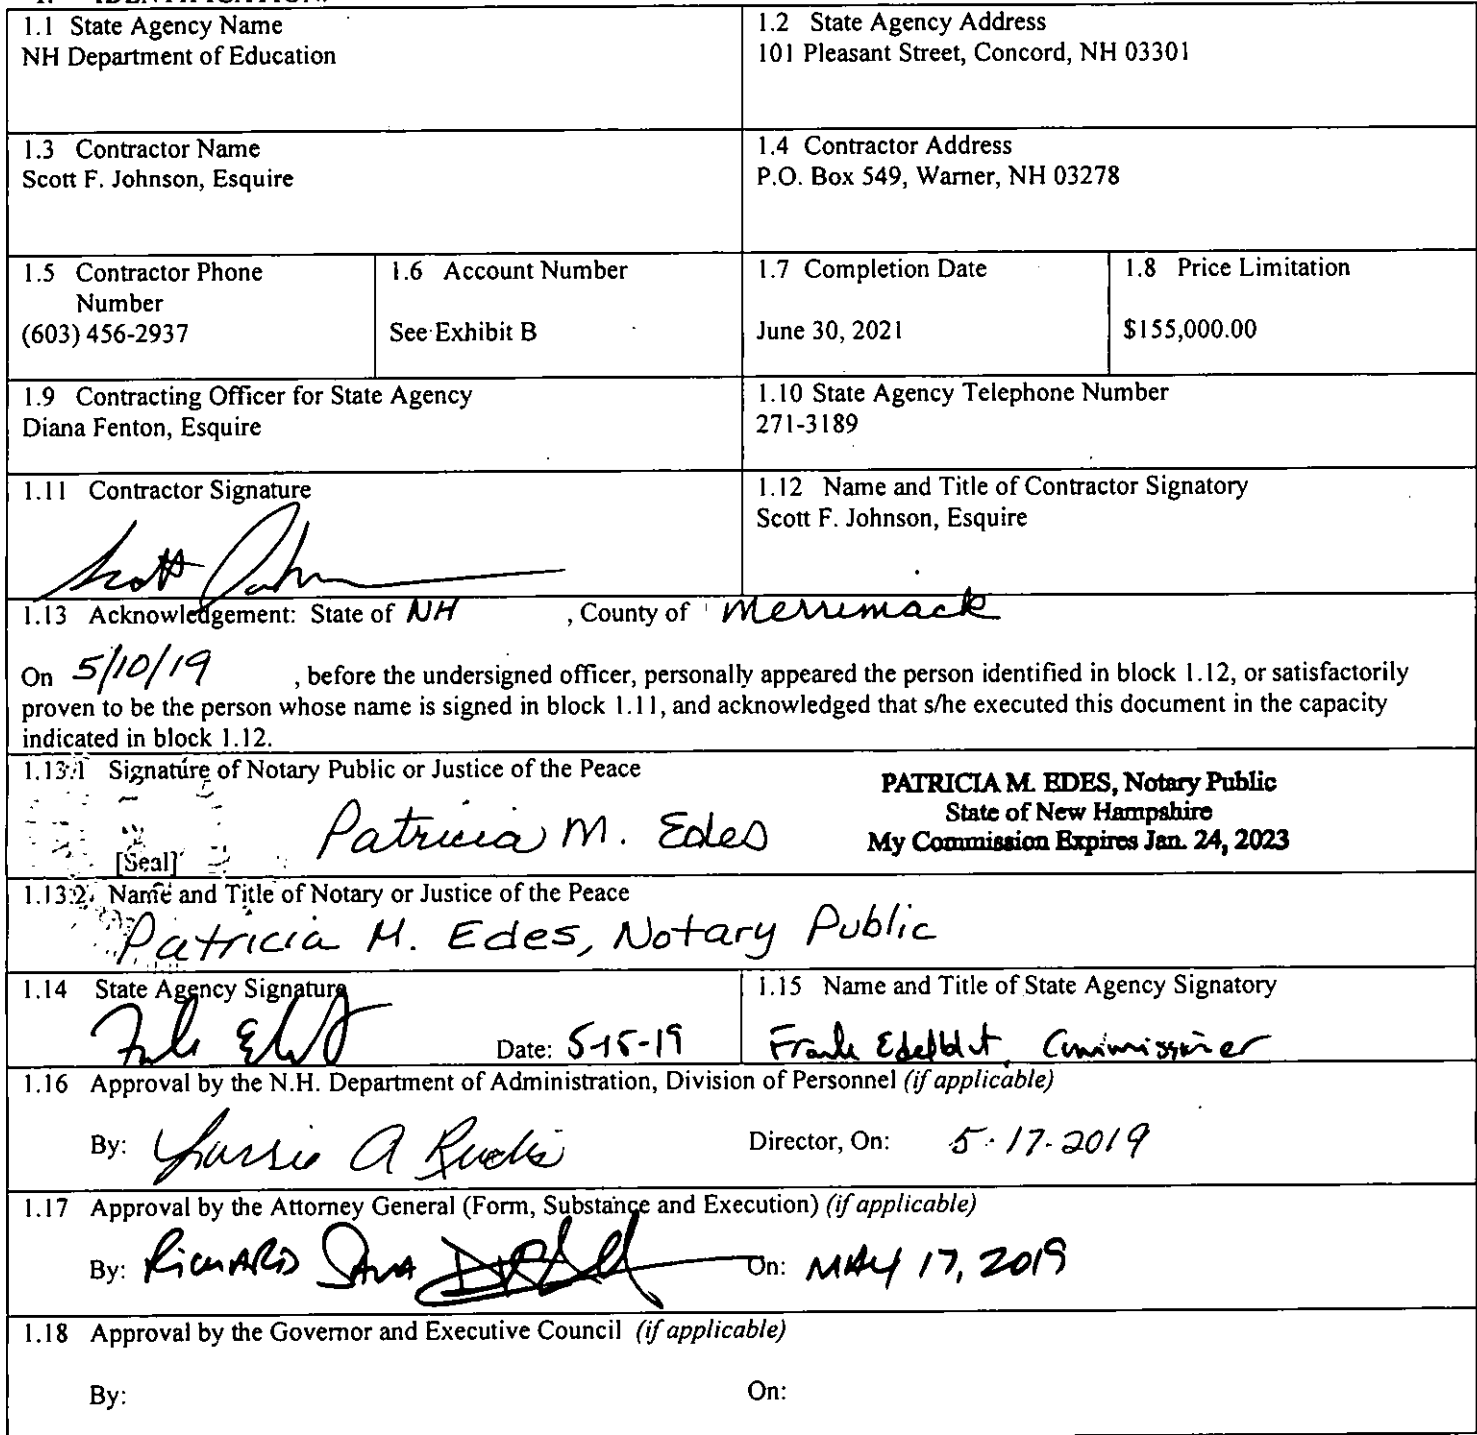 1.1 State Agency Name
NH Department of Education
1.2 State Agency Address
101 Pleasant Street, Concord, NH 03301
1.3 Contractor Name
Scott F. Johnson, Esquire
1.4 Contractor Address
P.O. Box 549, Warner, NH 03278
1.5 Contractor Phone
Number
(603) 456-2937
1.6 Account Number
See Exhibit B
1.7 Completion Date
June 30, 2021
1.8 Price Limitation
$155,000.00
1.9 Contracting Officer for State Agency
Diana Fenton, Esquire
1.10 State Agency Telephone Number
271-3189
1.11 Contractor Signature
Scott
1.12 Name and Title of Contractor Signatory
Scott F. Johnson, Esquire
1.13 Acknowledgement: State of NH , County of Merrimack
On 5/10/19 , before the undersigned officer, personally appeared the person identified in block 1.12, or satisfactorily
proven to be the person whose name is signed in block 1.11, and acknowledged that s/he executed this document in the capacity
indicated in block 1.12.
1.13.1 Signature of Notary Public or Justice of the Peace
PATRICIA M. EDES, Notary Public
State of New Hampshire
My Commission Expires Jan. 24, 2023
Patricia M. Edes
[Seal]
1.13.2 Name and Title of Notary or Justice of the Peace
Patricia M. Edes, Notary Public
1.14 State Agency Signature
Date: 5-15-19
1.15 Name and Title of State Agency Signatory
Frank Edelblut, Commissioner
1.16 Approval by the N.H. Department of Administration, Division of Personnel (if applicable)
By:
Director, On: 5-17-2019
1.17 Approval by the Attorney General (Form, Substance and Execution) (if applicable)
By: RICHARD
On: MAY 17, 2019
1.18 Approval by the Governor and Executive Council (if applicable)
By:
On: